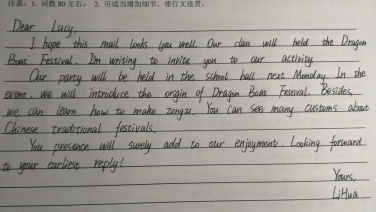 注意：1. 词数80左右； 2. 可适当增加细节，使行文连贯。
Dear Lucy,
I hope this mail looks you well. Our class will held the Dragon
Boat Festival. I'm writing to invite you to our activity.
Our party will be held in the school hall next Monday. In the
event, we will introduce the origin of Dragon Boat Festival. Besides,
we can learn how to make zongzi. You can see many customs about
Chinese traditional festivals.
You presence will surely add to our enjoyment. Looking forward
to your earliest reply!
Yours,
LiHua